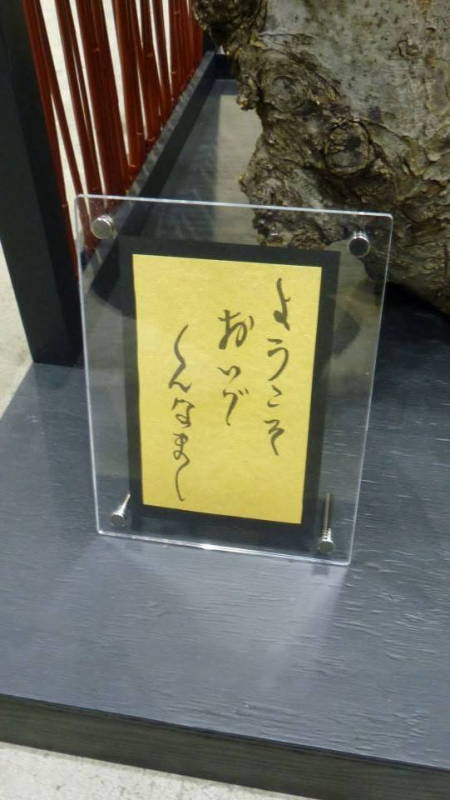 ようこそ
おいで
くんなまし